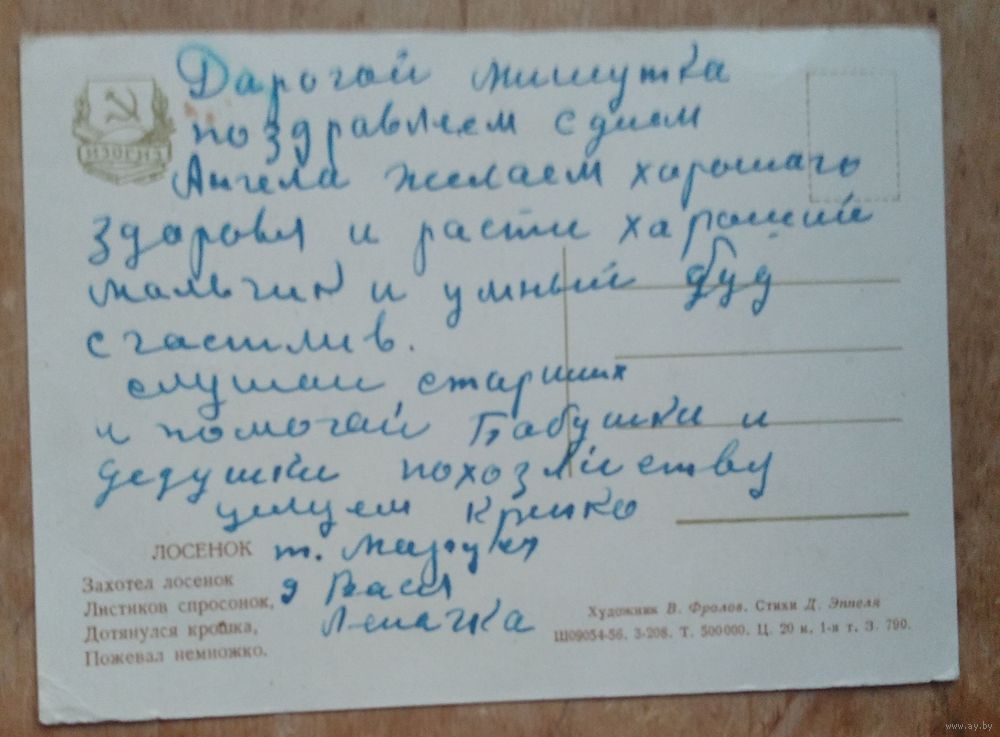 ИЗОГИЗ
Дарогой мишутка
поздравляем с днем
Ангела желаем харошаго
здаровя и расти хароший
мальчик и умный буд
счастлив.
слушай старших
и помогай Бабушки и
дедушки похозяйству
целуем крепко
т. Маруся
д Вася
Леначка
ЛОСЕНОК
Захотел лосенок
Листиков спросонок,
Дотянулся крошка,
Пожевал немножко.
Художник В. Фролов. Стихи Д. Эппеля
Ш09054-56. 3-208. Т. 500000. Ц. 20 к. 1-я т. З. 790.
www.ay.by